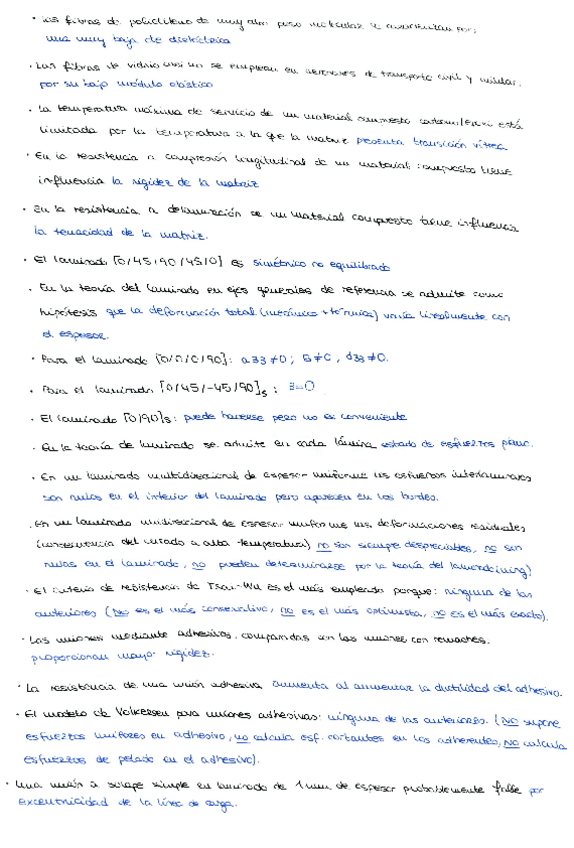 · Las fibras de polietileno de muy alto peso molecular se caracterizan por:
una muy baja cte dieléctrica
· Las fibras de vidrio casi no se emplean en aeronaves de transporte civil y militar.
por su bajo módulo elástico
· La temperatura máxima de servicio de un material compuesto carbono/epoxi está
limitada por la temperatura a la que la matriz presenta transición vítrea
· En la resistencia a compresión longitudinal de un material compuesto tiene
influencia la rigidez de la matriz
· En la resistencia a delaminación de un material compuesto tiene influencia
la tenacidad de la matriz.
· El laminado [0/45/90/45/0] es simétrico no equilibrado
· En la teoría del laminado en ejes generales de referencia se admite como
hipótesis que la deformación total (mecánica + térmica) varía linealmente con
el espesor.
· Para el laminado [0/0/0/90]: a33≠0; B≠0, d33≠0.
· Para el laminado [0/45/-45/90]s: B=0
· El laminado [0/90]s: puede hacerse pero no es conveniente
· En la teoría de laminado se admite en cada lámina estado de esfuerzos plano.
· En un laminado multidireccional de espesor uniforme los esfuerzos interlaminares
son nulos en el interior del laminado pero aparecen en los bordes.
· En un laminado unidireccional de espesor uniforme las deformaciones residuales
(consecuencia del curado a alta temperatura) no son siempre despreciables, no son
nulas en el laminado, no pueden determinarse por la teoría del
· El criterio de resistencia de Tsai-Wu es el más empleado porque: ninguna de las
anteriores (No es el más conservativo, no es el más optimista, no es el más exacto).
· Las uniones mediante adhesivos, comparadas con las uniones con remaches.
proporcionan mayor rigidez.
· La resistencia de una unión adhesiva aumenta al aumentar la ductilidad del adhesivo.
· El modelo de Volkersen para uniones adhesivas: ninguna de las anteriores. (No supone
esfuerzos uniformes en adhesivo, no calcula esf. cortantes en los adherentes, no calcula
esfuerzos de pelado en el adhesivo).
· Una unión a solape simple en laminado de 1mm de espesor probablemente falle por
excentricidad de la línea de carga.